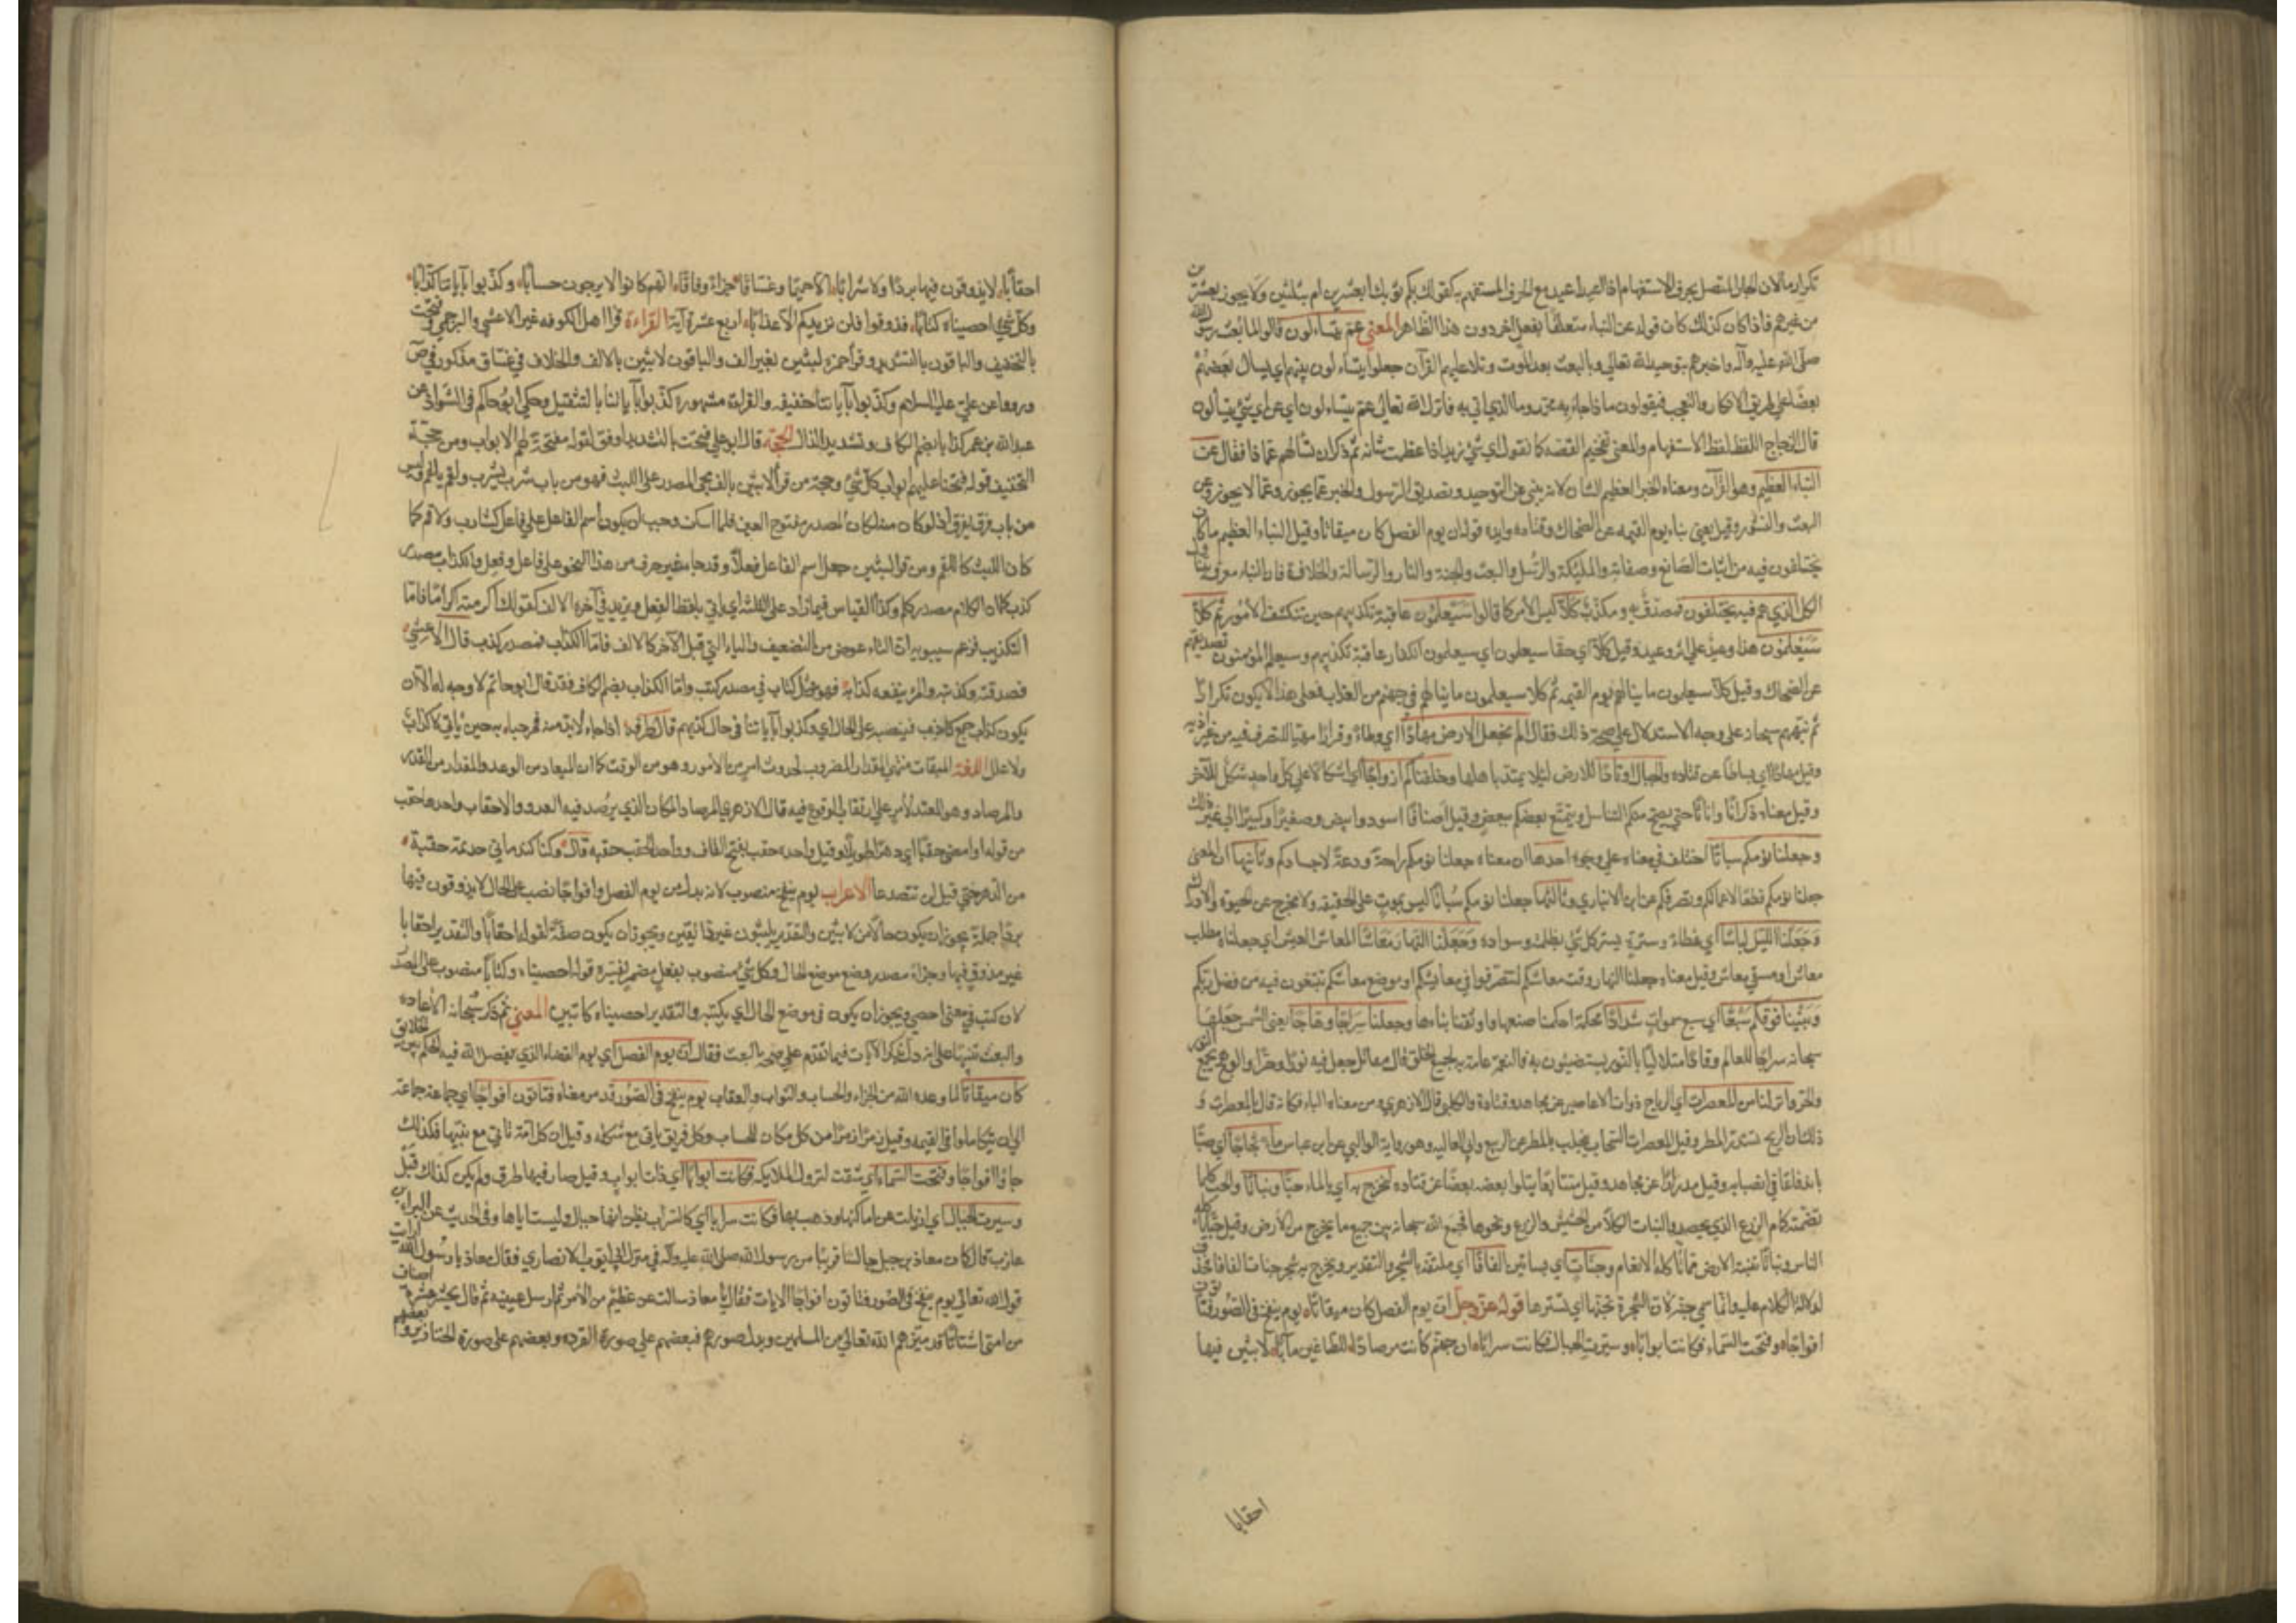 تكرار ما لان الجار المتصل بحرف الاستفهام اذا اعيد اعيد مع الحرف المستفهم به كقولك بكم ثوبك ابعشرين ام بثلثين ولا يجوز بعشرين
من غير همز فاذا كان كذلك كان قوله عن النباء متعلقا بفعل اخر دون هذا الظاهر المعني عم يتساءلون قالوا لما بعث رسول الله
صلى الله عليه وآله واخبرهم بتوحيد الله تعالى وبالبعث بعد الموت وتلا عليهم القرآن جعلوا يتساءلون بينهم اي يسال بعضهم
بعضا على طريق الانكار والتعجب فيقولون ماذا جاء به محمد وما الذي اتي به فانزل الله تعالى عم يتساءلون اي عن اي شيء يتسألون
قال الزجاج اللفظ لفظ الاستفهام والمعنى تفخيم القصة كما تقول اي شيء زيد اذا عظمت شانه ثم ذكر ان تسآلهم عماذا فقال عن
النباء العظيم وهو القرآن ومعناه الخبر العظيم الشان لانه ينبئ عن التوحيد وتصديق الرسول والخبر عما يجوز وعما لا يجوز وعن
البعث والنشور وقيل يعني نباء يوم القيمه عن الضحاك وقتاده وايده قوله ان يوم الفصل كان ميقاتا وقيل النباء العظيم ما كانوا
يختلفون فيه من اثبات الصانع وصفاته والمليكة والرسل والبعث والجنة والنار والرسالة والخلافة فان النباء معروف يتناول
الكل الذي هم فيه يختلفون فمصدق به ومكذب كلا ليس الامر كما قالوا سيعلمون عاقبة تكذيبهم حين تنكشف الامور ثم كلا
سيعلمون هذا وعيد على اثر وعيد وقيل كلا اي حقا سيعلمون اي سيعلمون الكفار عاقبة تكذيبهم وسيعلم المؤمنون عاقبة تصديقهم
عن الضحاك وقيل كلا سيعلمون ما ينالهم يوم القيمه ثم كلا سيعلمون ما ينالهم في جهنم من العذاب فعلى هذا لا يكون تكرارا
ثم نبههم سبحانه على وجه الاستدلال على صحة ذلك فقال الم نجعل الارض مهادا اي وطاء وقرارا مهيا للتصرف فيه من غير اذيه
وقيل مهادا اي بساطا عن قتاده والجبال اوتادا للارض لئلا يميد باهلها وخلقناكم ازواجا اي اشكالا كل واحد شكل للآخر
وقيل معناه ذكرانا واناثا حتى يصح منكم التناسل ويتمتع بعضكم ببعض وقيل اصنافا اسود وابيض وصغيرا وكبيرا الى غير ذلك
وجعلنا نومكم سباتا اختلف في معناه على وجوه احدها ان معناه جعلنا نومكم راحة ودعة لاجسادكم وثانيها ان المعنى
جعلنا نومكم قطعا لاعمالكم وتصرفكم عن ابن الانباري وثالثها جعلنا نومكم سباتا ليس بموت على الحقيقه ولا مخرج عن الحيوة والادراك
وجعلنا الليل لباسا اي غطاء وسترة يستر كل شيء بظلمته وسواده وجعلنا النهار معاشا المعاش العيش اي جعلناه مطلب
معاش او مسبغى معاش وقيل معناه جعلنا النهار وقت معاشكم لتتصرفوا في معايشكم او موضع معاشكم تبتغون فيه من فضل ربكم
وبنينا فوقكم سبعا اي سبع سموات شدادا محكمة احكمنا صنعها واوثقنا بناءها وجعلنا سراجا وهاجا يعني الشمس جعلها
سبحانه سراجا للعالم وقادا متلاليا بالنور يستضيئون به فالنعمة عامة به لجميع الخلق قال مقاتل جعل فيه نورا وحرا والوهج يجمع النور
والحر وانزلنا من المعصرات اي الرياح ذوات الاعاصير عن مجاهد وقتادة والكلبي قال الازهري ومن معناه الباء فكانه قال بالمعصرات و
ذلك ان الريح تستدر المطر وقيل المعصرات السحاب يتحلب بالمطر عن الربيع وابي العاليه وهو رواية الوالبي عن ابن عباس ماء ثجاجا اي صبا
با ندفاعا في انصبابه وقيل مدرارا عن مجاهد وقيل متتابعا يتلوا بعضه بعضا عن قتاده لنخرج به اي بالماء حبا ونباتا والحب كلما
تضمنه كمام الزرع الذي يحصد والنبات الكلا من الحشيش والزرع ونحوها فجمع الله سبحانه بين جميع ما يخرج من الارض وقيل حبا ياكله
الناس ونباتا تنبته الارض مما ياكله الانعام وجنات اي بساتين الفافا اي ملتفة بالشجر والتقدير ويخرج به شجر جنات الفافا فحذف
لدلالة الكلام عليه وانما سمي جنة لان الشجرة تجنها اي تسترها قوله عز وجل ان يوم الفصل كان ميقاتا يوم ينفخ في الصور فتاتون
افواجا وفتحت السماء فكانت ابوابا وسيرت الجبال فكانت سرابا ان جهنم كانت مرصادا للطاغين مآبا لابثين فيها
احقابا
احقابا لا يذوقون فيها بردا ولا شرابا الا حميما وغساقا جزاء وفاقا انهم كانوا لا يرجون حسابا وكذبوا بآياتنا كذابا
وكل شيء احصيناه كتابا فذوقوا فلن نزيدكم الا عذابا اربع عشرة آية القراءة قرا اهل الكوفه غير الاعشى والبرجمي وفتحت
بالتخفيف والباقون بالتشديد وقرأ حمزه لبثين بغير الف والباقون لابثين بالالف والخلاف في غساق مذكور في ص
وروي عن علي عليه السلام وكذبوا بآياتنا كذابا خفيفه والقراءة مشهوره كذبوا بآياتنا بالتثقيل وحكى ابو حاكم في الشواذ عن
عبد الله بن عمر كذابا بضم الكاف وتشديد الذال الحجة قال ابو علي فتحت بالتشديد اوفق لقوله مفتحة لهم الابواب ومن حجة
التخفيف قوله فتحنا عليهم ابواب كل شيء وحجة من قرأ لابثين بالف مجيء المصدر على اللبث فهو من باب شرب يشرب ولقم يلقم وليس
من باب فرق يفرق اذ لو كان منه لكان المصدر مفتوح العين فلما اسكن وجب ان يكون اسم الفاعل على فاعل كشارب ولاقم كما
كان اللبث كاللقم ومن قرأ لبثين جعل اسم الفاعل فعلا وقد جاء غير حرف من هذا النحو على فاعل وفعل والكذاب مصدر
كذب كما ان الكلام مصدر كلم وكذا القياس فيما زاد على الثلثه اي ياتي بلفظ الفعل ويزيد في آخره الالف كقولك اكرمته اكراما فاما
التكذيب فزعم سيبويه ان التاء عوض من التضعيف والياء التي قبل الآخر كالالف فاما الكذاب فمصدر كذب قال الاعشى
فصدقته وكذبته والمرء ينفعه كذابه فهو مثل كتاب في مصدر كتب واما الكذاب بضم الكاف فقد قال ابو حاتم لا وجه له الا ان
يكون كذاب جمع كاذب فينصبه على الحال اي وكذبوا بآياتنا في حال كذبهم قال طرفه اذا جاء لابد منه فمرحبا به حين ياتي لا كذاب
ولا علل اللغة الميقات منتهى المقدار المضروب لحدوث امر من الامور وهو من الوقت كما ان الميعاد من الوعد والمقدار من القدر
والمرصاد وهو المعد لامر على ارتقاب الوقوع فيه قال الازهري المرصاد المكان الذي يرصد فيه العدو والاحقاب واحدها حقب
من قوله او امضي حقبا اي دهرا طويلا وقيل واحده حقب بفتح القاف وواحد الحقب حقبه قال وكنا كندماني جذيمة حقبة
من الدهر حتى قيل لن نتصدعا الاعراب يوم ينفخ منصوب لانه بدل من يوم الفصل وافواجا نصب على الحال لا يذوقون فيها
بردا جملة يجوز ان يكون حالا من لابثين والتقدير يلبثون غير ذائقين ويجوز ان يكون صفة لقوله احقابا والتقدير احقابا
غير مذوق فيها وجزاء مصدر وضع موضع الحال وكل شيء منصوب بفعل مضمر يفسره قوله احصيناه وكتابا منصوب على المصدر
لان كتب في معنى احصى ويجوز ان يكون في موضع الحال اي يكتبه والتقدير احصيناه كاتبين المعنى ثم ذكر سبحانه الاعادة
والبعث تنبيها على انه دل بذكر الآيات فيما تقدم على صحة البعث فقال ان يوم الفصل اي يوم القضاء الذي يفصل الله فيه الحكم بين الخلائق
كان ميقاتا لما وعد الله من الجزاء والحساب والثواب والعقاب يوم ينفخ في الصور قد مر معناه فتاتون افواجا اي جماعة جماعة
الى ان تتكاملوا في القيمه وقيل زمرا زمرا من كل مكان للحساب وكل فريق ياتي مع شكله وقيل ان كل امة تاتي مع نبيها فكذلك
جاؤا افواجا وفتحت السماء اي شقت لنزول الملايكه فكانت ابوابا اي ذات ابواب وقيل صار فيها طرق ولم يكن كذلك قبل
وسيرت الجبال اي ازيلت عن اماكنها وذهب بها فكانت سرابا اي كالسراب يظن انها جبال وليست اياها وفي الحديث عن البراء بن
عازب قال كان معاذ بن جبل جالسا قريبا من رسول الله صلى الله عليه وآله في منزل ابي ايوب الانصاري فقال معاذ يا رسول الله ارايت
قول الله تعالى يوم ينفخ في الصور فتاتون افواجا الايات فقال يا معاذ سالت عن عظيم من الامر ثم ارسل عينيه ثم قال يحشر عشرة اصناف
من امتي اشتاتا قد ميزهم الله تعالى من المسلمين وبدل صورهم فبعضهم على صورة القردة وبعضهم على صورة الخنازير وبعضهم